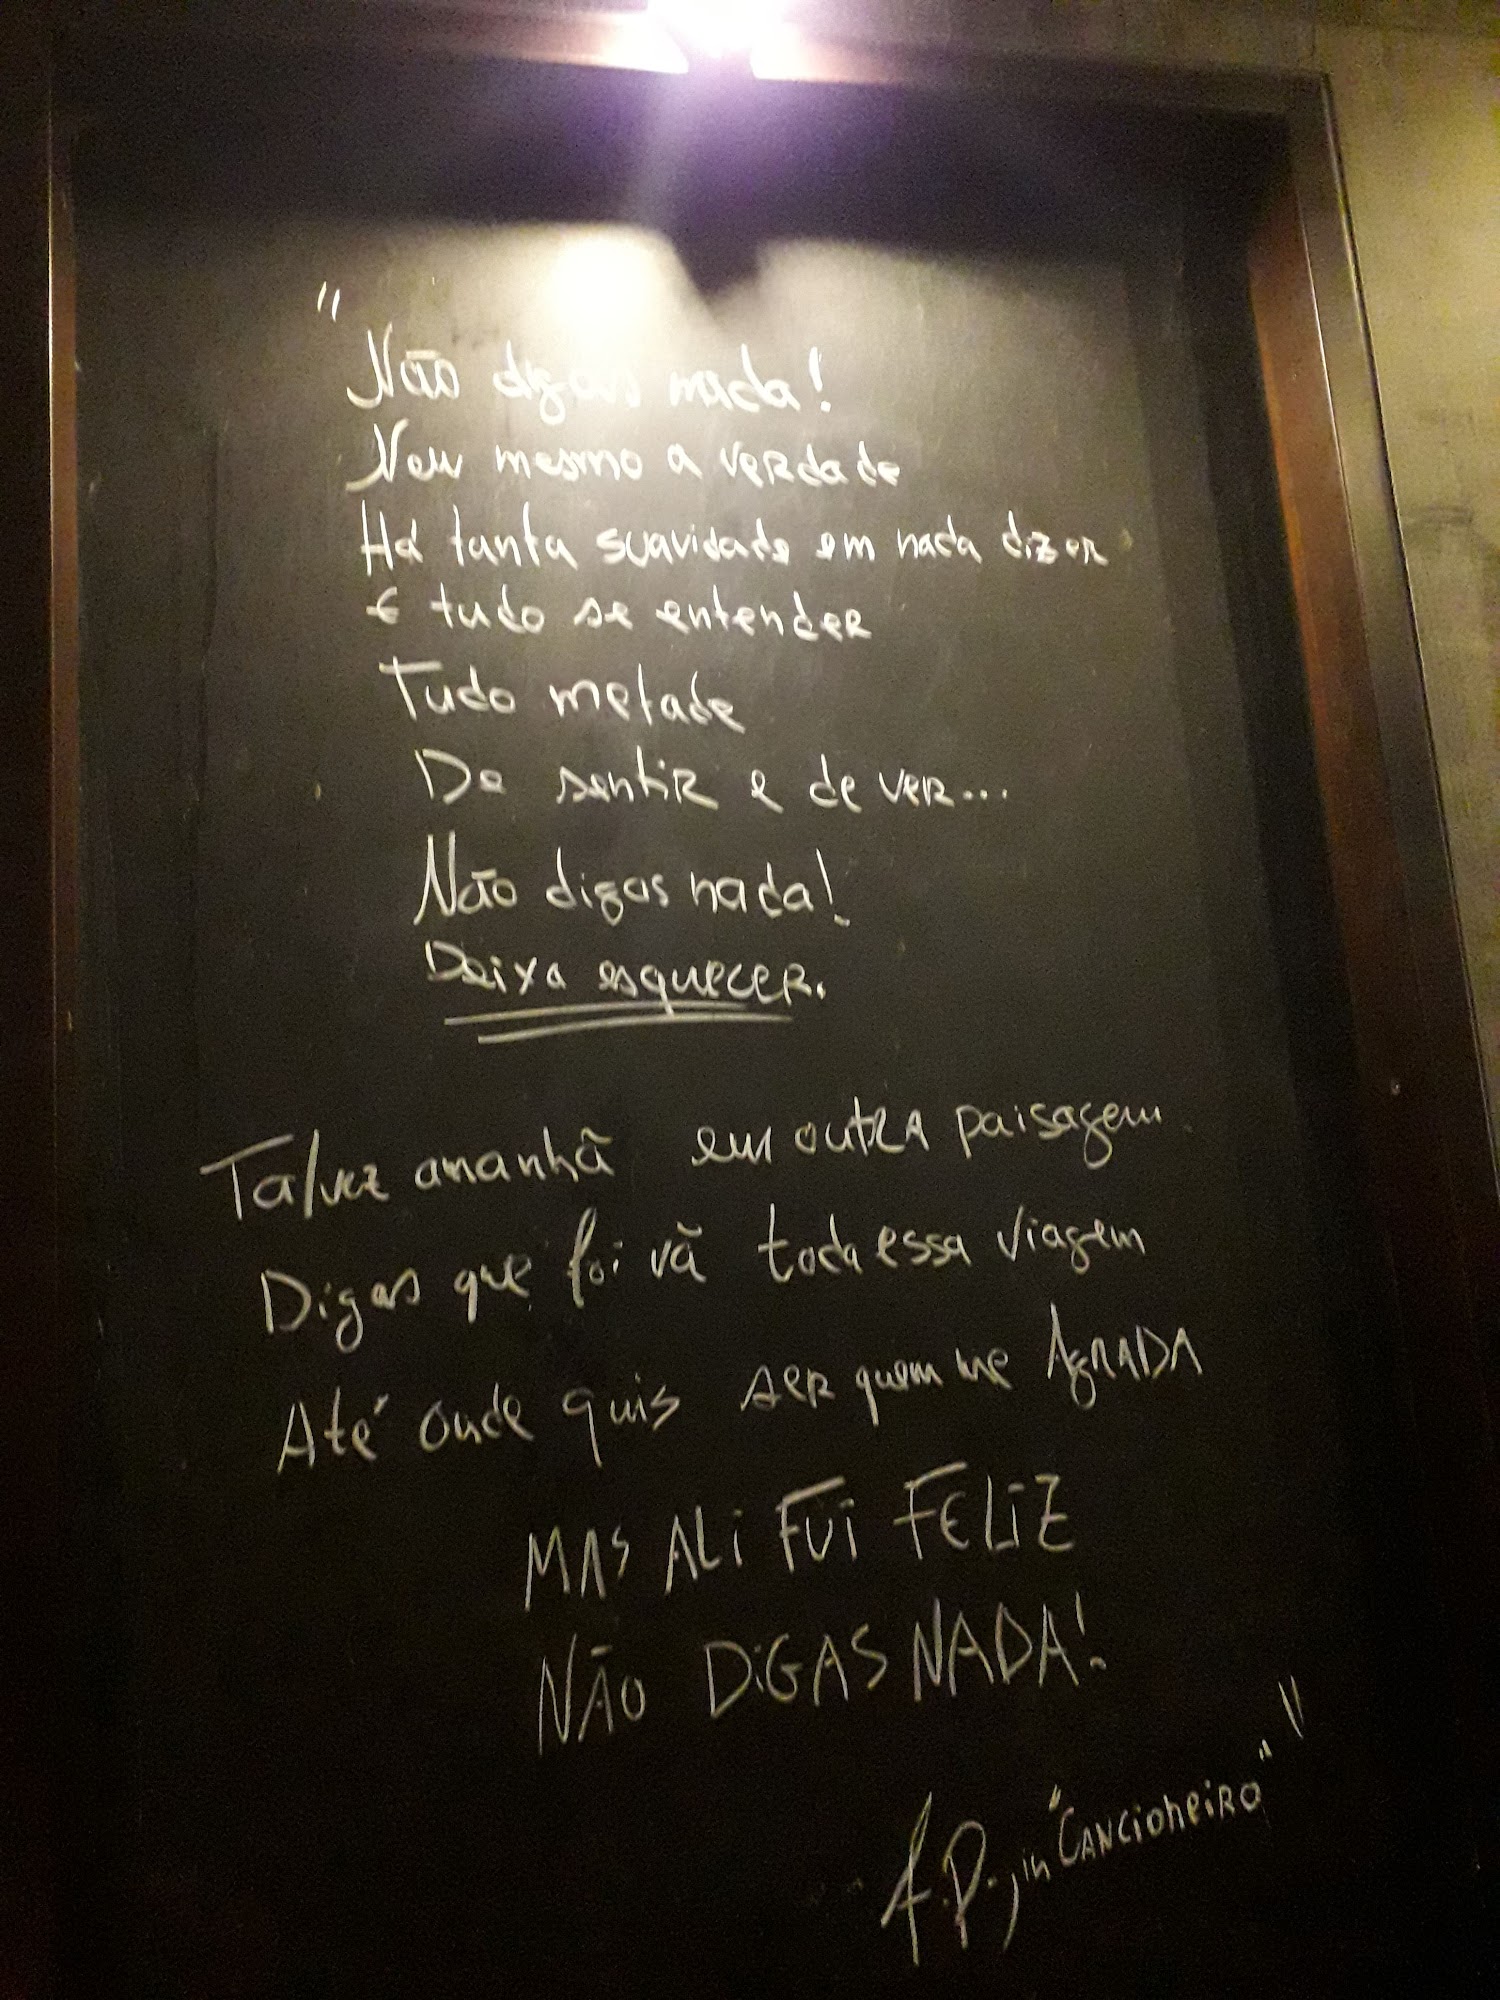 "
Não digas nada!
Nem mesmo a verdade
Há tanta suavidade em nada dizer
E tudo se entender
Tudo metade
De sentir e de ver...
Não digas nada!
Deixa esquecer.
Talvez amanhã em outra paisagem
Digas que foi vã toda essa viagem
Até onde quis ser quem me AgRADA
MAS ALi FUi FELiZ
NÃO DiGAS NADA!
"
F.P., in "CANCioneiRO"